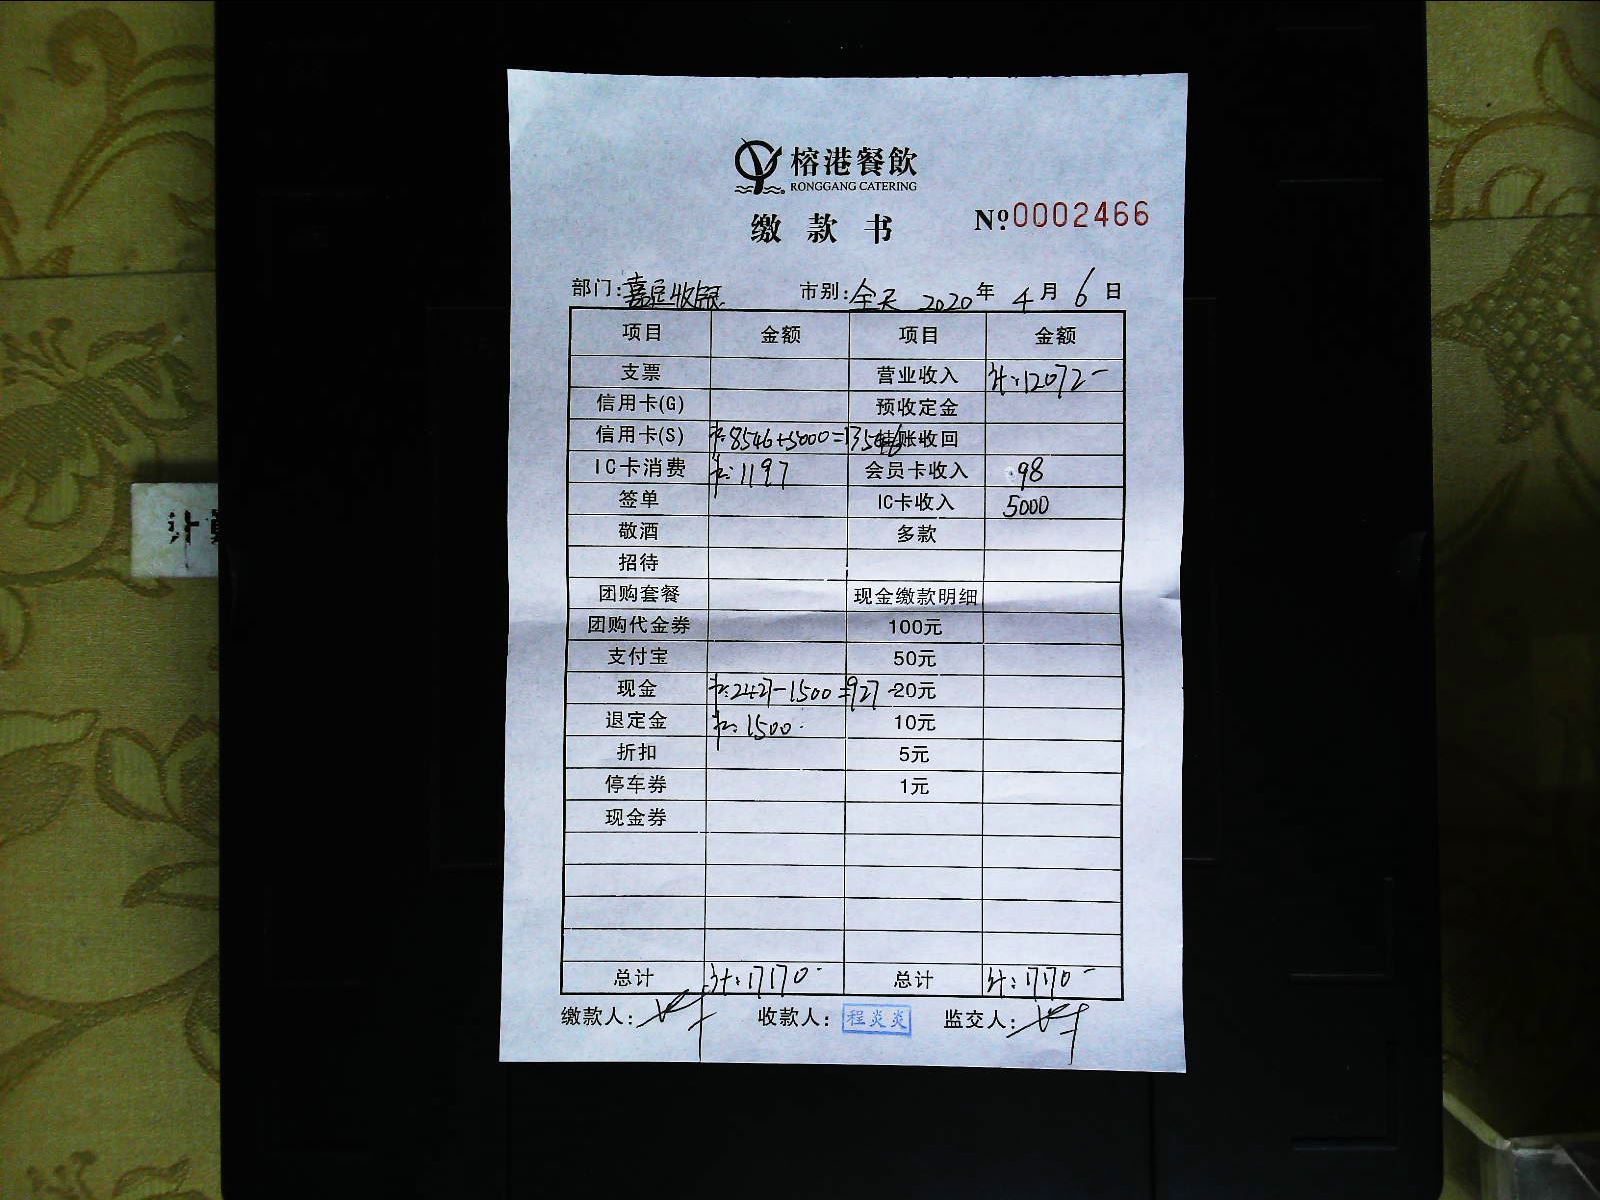 榕港餐飲
RONGGANG CATERING
缴款书 №0002466
部门:嘉定收银 市别:全天 2020年4月6日
项目 金额 项目 金额
支票 营业收入 计:12072-
信用卡(G) 预收定金
信用卡(S) 卡:8546+5000=13546 挂账收回
IC卡消费 卡:1197 会员卡收入 98
签单 IC卡收入 5000
敬酒 多款
招待
团购套餐 现金缴款明细
团购代金券 100元
支付宝 50元
现金 卡:2427-1500=927- 20元
退定金 卡:1500 10元
折扣 5元
停车券 1元
现金券
总计 计:17170- 总计 计:17170-
缴款人: 收款人:程炎炎 监交人: